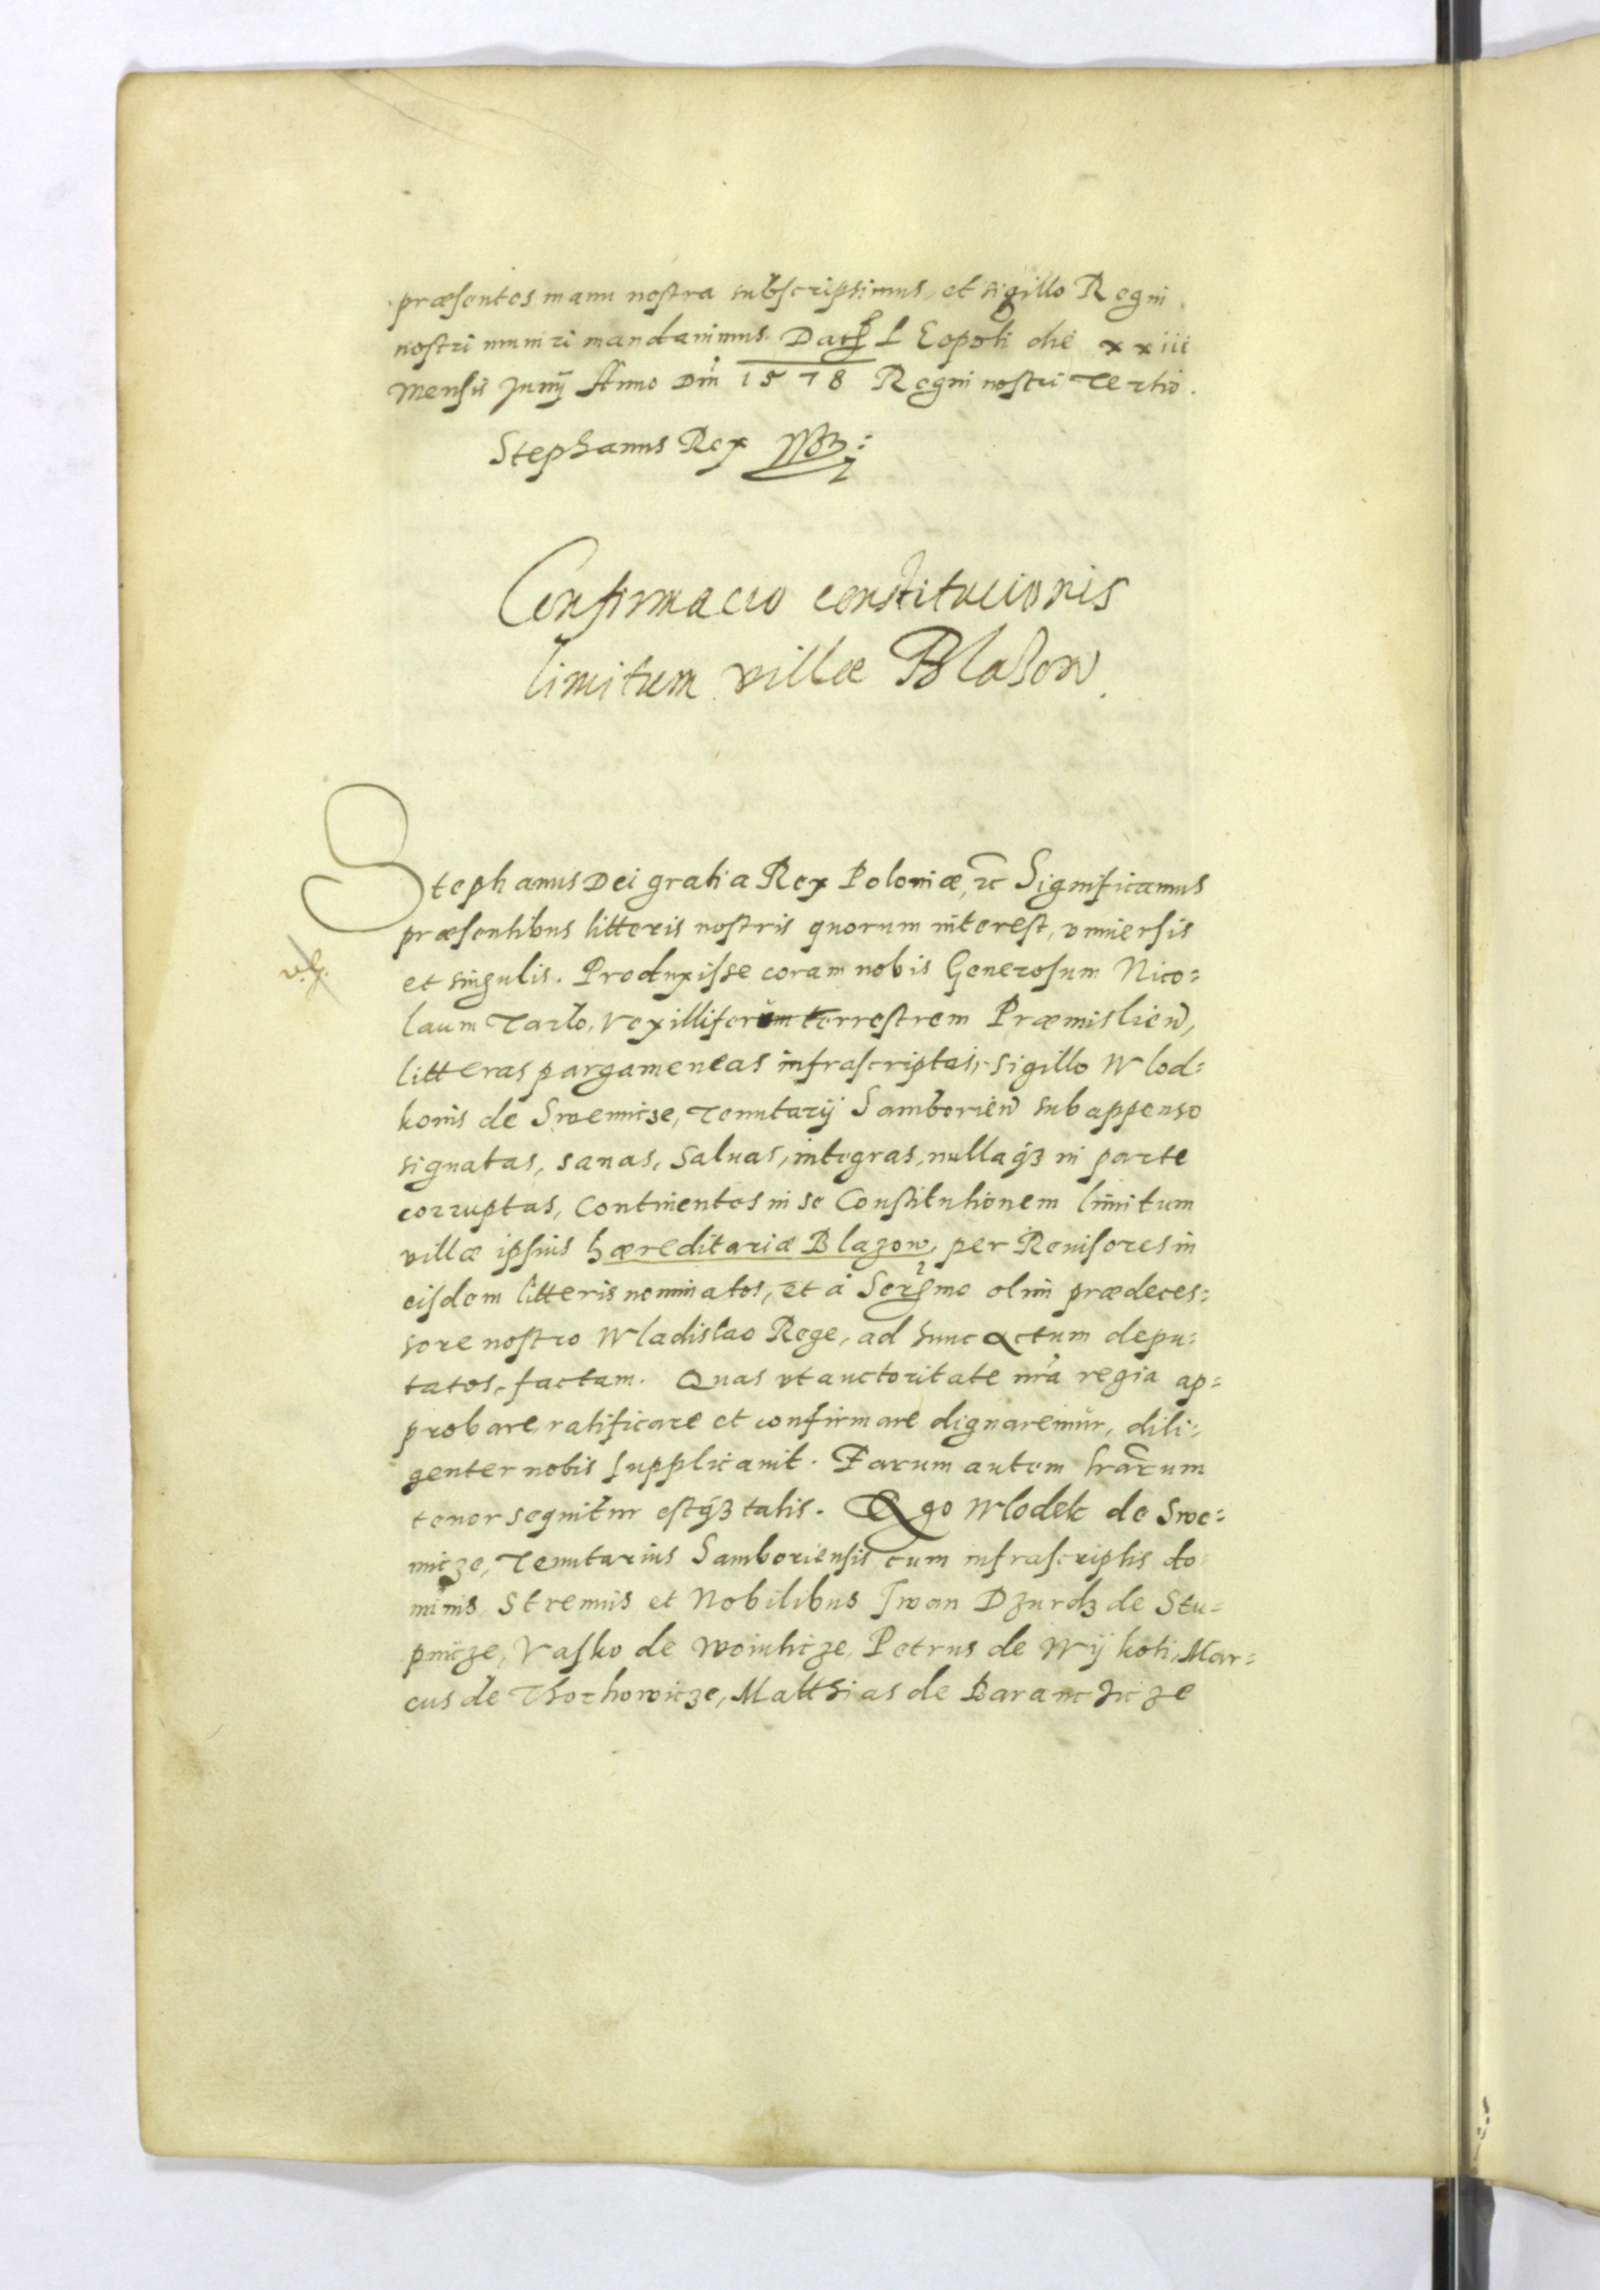 præsentes manu nostra subscripsimus, et sigillo Regni
nostri muniri mandauimus. Dat L Eopoli die xxiii
Mensis Junij Anno Dni 1578 Regni nostri Tertio.
Stephanus Rex
Confirmacio constitucionis
limitum villæ Blason
Stephanus Dei gratia Rex Poloniæ, &c Significamus
præsentibus litteris nostris quorum interest, vniuersis
et singulis. Produxisse coram nobis Generosum Nico:
laum Tarlo, Vexilliferum terrestrem Præmislien,
litteras pargameneas infrascriptas, Sigillo Wlod:
konis de Swemicze, Tenutarij Samborien subappenso
signatas, sanas, saluas, integras, nullaqz in parte
corruptas, Continentes in se Constitutionem limitum
villæ ipsius hæreditariæ Blazow, per Reuisores in
eisdem litteris nominatos, et à Sermo olim prædeces:
sore nostro Wladislao Rege, ad hunc actum depu:
tatos, factam. Quas vt auctoritate nra regia ap:
probare, ratificare et confirmare dignaremur, dili:
genter nobis supplicauit. Earum autem lrarum
tenor sequitur estqz talis. Ego Wlodek de Swe:
micze, Tenutarius Samboriensis cum infrascriptis do
minis, Strenuis et Nobilibus Iwan Dzurdz de Stu:
pnicze, Vasko de Woiuticze, Petrus de Wijkoti, Mar:
cus de Thorhowicze, Matthias de Baranczicze